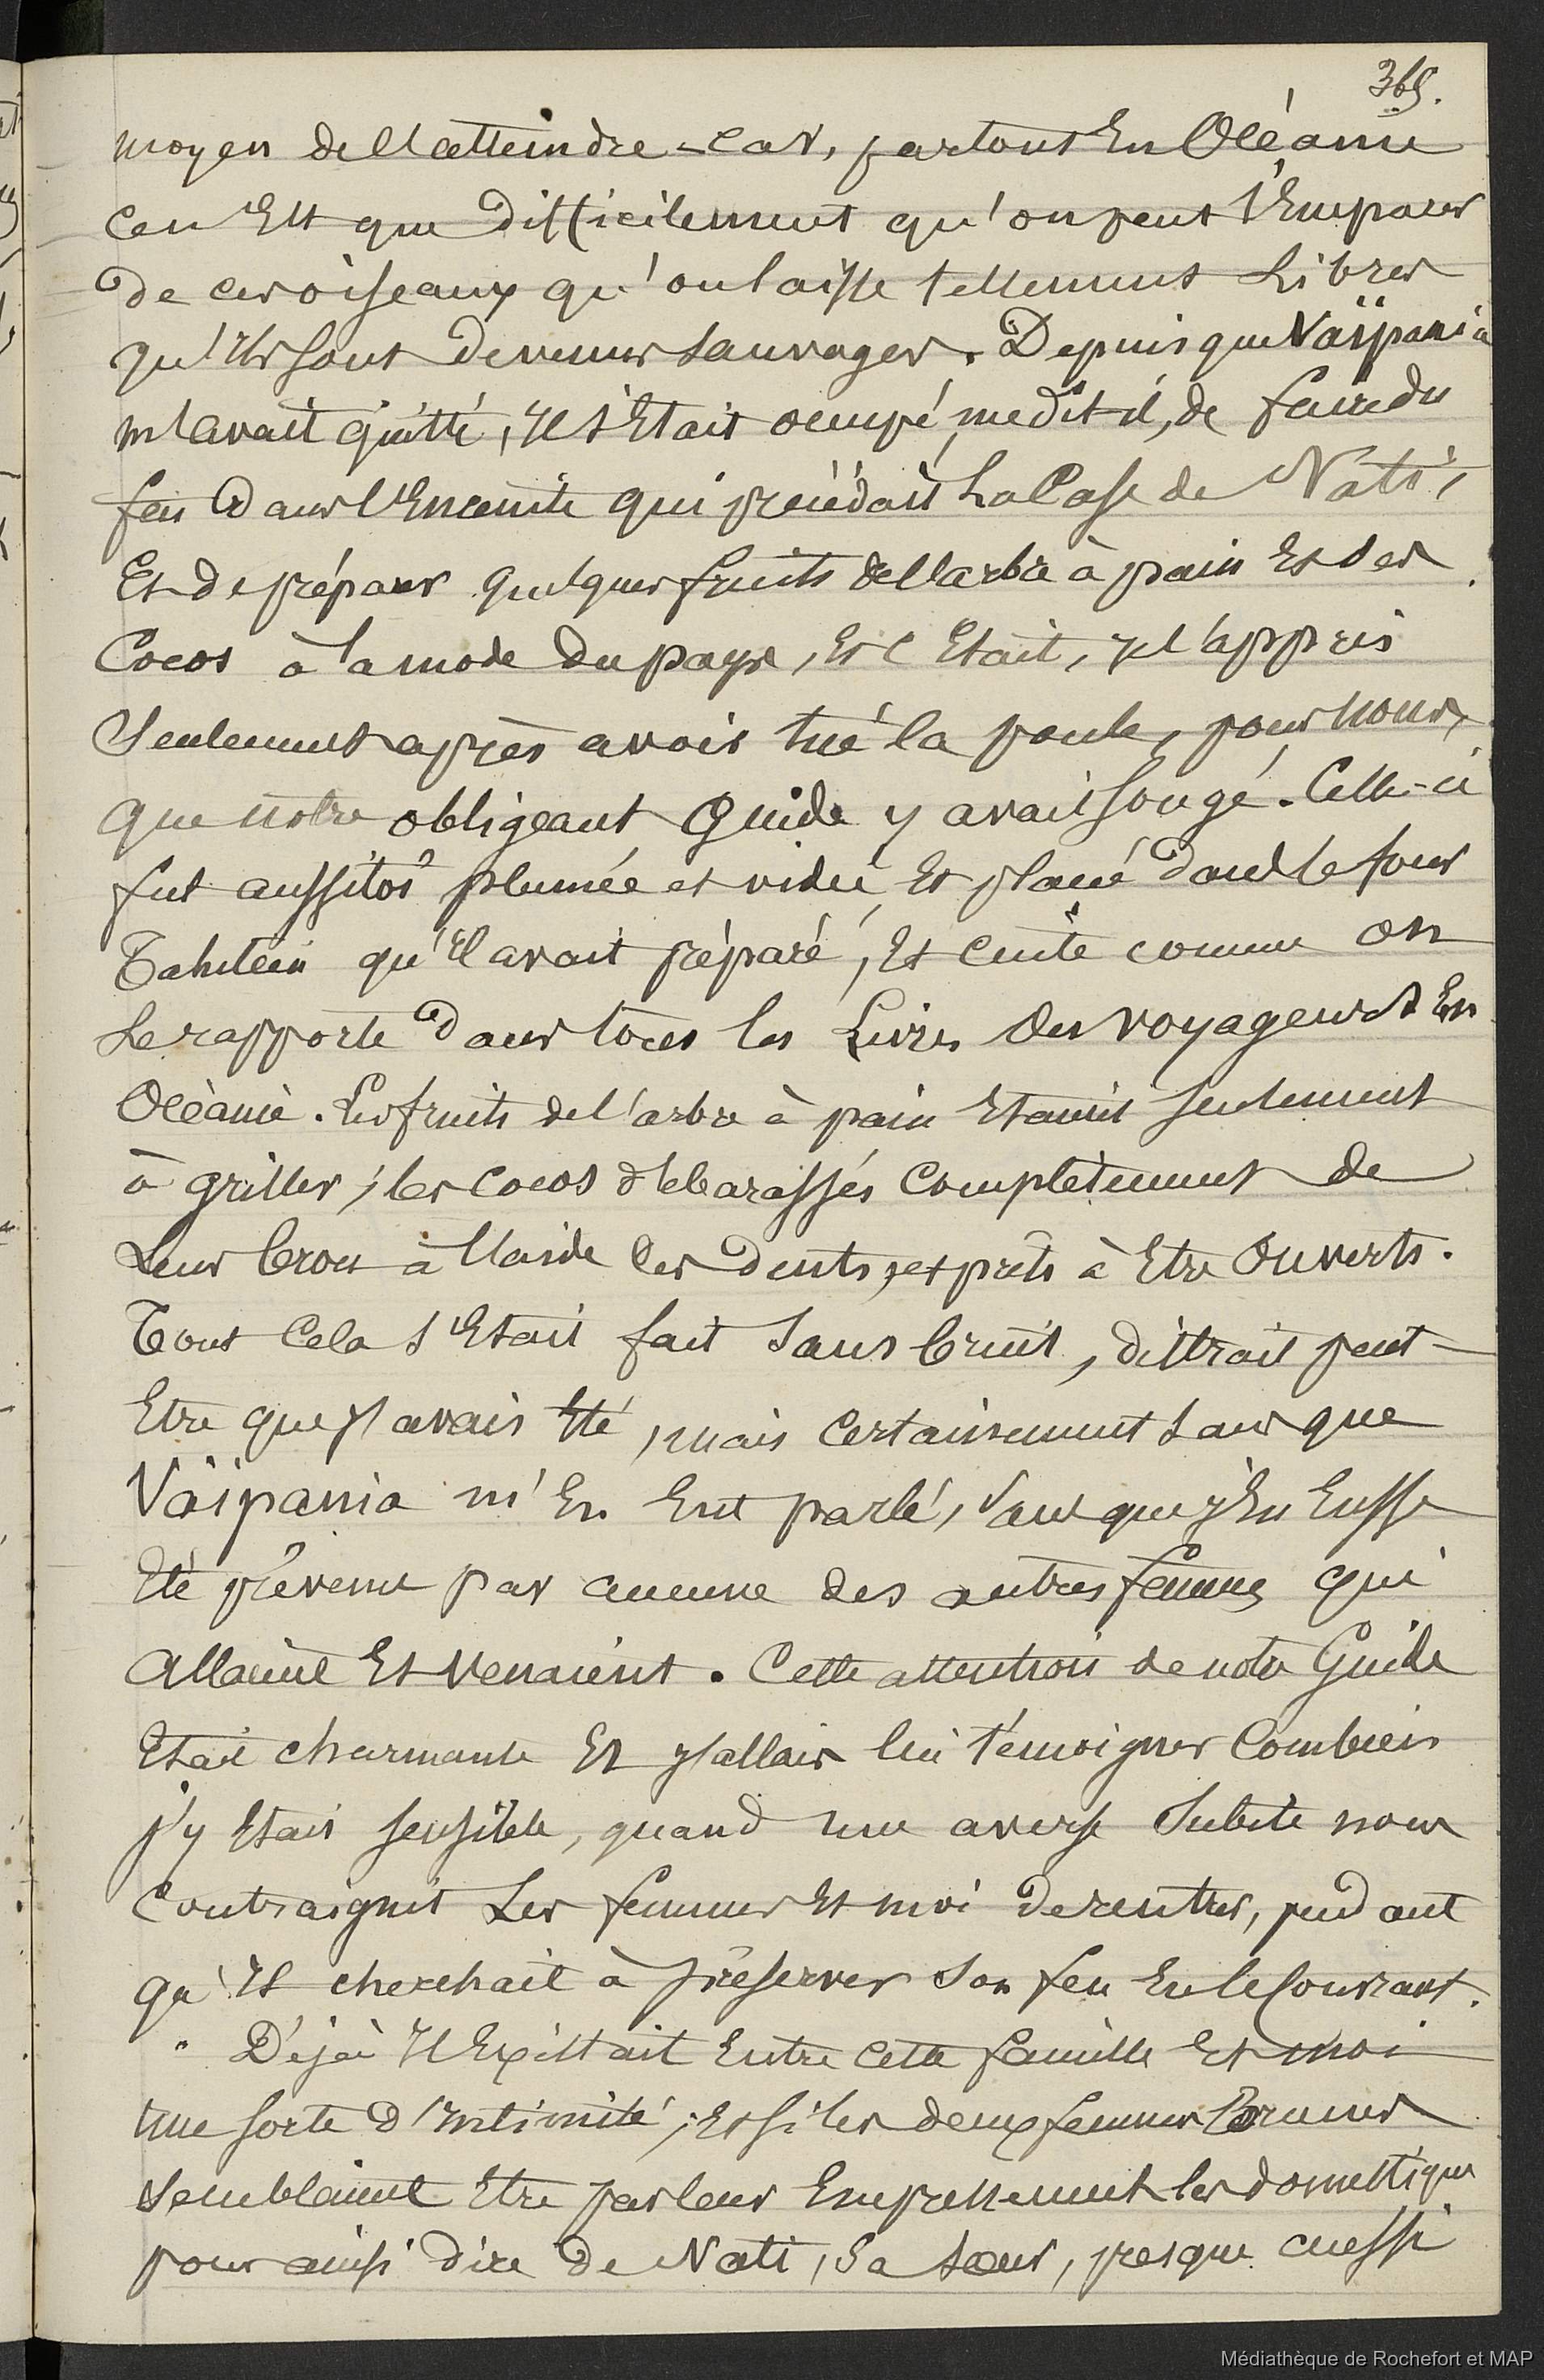 369.
moyen de l'atteindre - car, partout En Océanie
ce n'Est que difficilement qu'on peut s'Emparer
de ces oiseaux qu'on laisse tellement Libres
qu'Ils sont devenus sauvages. Depuis que Vaïpania
m'avait quitté, Il s'Etait occupé, me dit-il, de faire du
feu dans l'Enceinte qui précédait La Case de Nati,
Et de préparer quelques fruits de l'arbre à pain Et des
Cocos à la mode du pays, Et c'Etait, je l'appris
Seulement après avoir tué la poule, pour nous,
que notre obligeant guide y avait songé. Celle-ci
fut aussitôt plumée et vidée, Et placé dans le four
Tahitien qu'Il avait préparé, Et cuite comme on
Le rapporte dans tous les Livres des voyageurs En
Océanie. Les fruits de l'arbre à pain Etaient seulement
à griller, les cocos débarassés complètement de
Leur brou à l'aide des dents, et prêts à Etre Ouverts.
Tout Cela s'Etait fait sans bruit, distrait peut-
Etre que j'avais Eté, mais certainement sans que
Vaïpania m'En Eut parlé, sans que j'En Eusse
Eté prévenu par aucune des autres femmes qui
allaient Et venaient. Cette attention de notre Guide
Etait charmante Et j'allais lui témoigner Combien
j'y Etais sensible, quand une averse Subite nous
Contraignit Les femmes Et moi de rentrer, pendant
qu'Il cherchait à préserver son feu En le couvrant.
" Déjà Il Existait Entre cette famille Et moi
une sorte d'Intimité; Et si les deux femmes Brunes
semblaient Etre par leur Empressement les domestiques
pour ainsi dire de Nati, sa sœur, presque aussi
Médiathèque de Rochefort et MAP